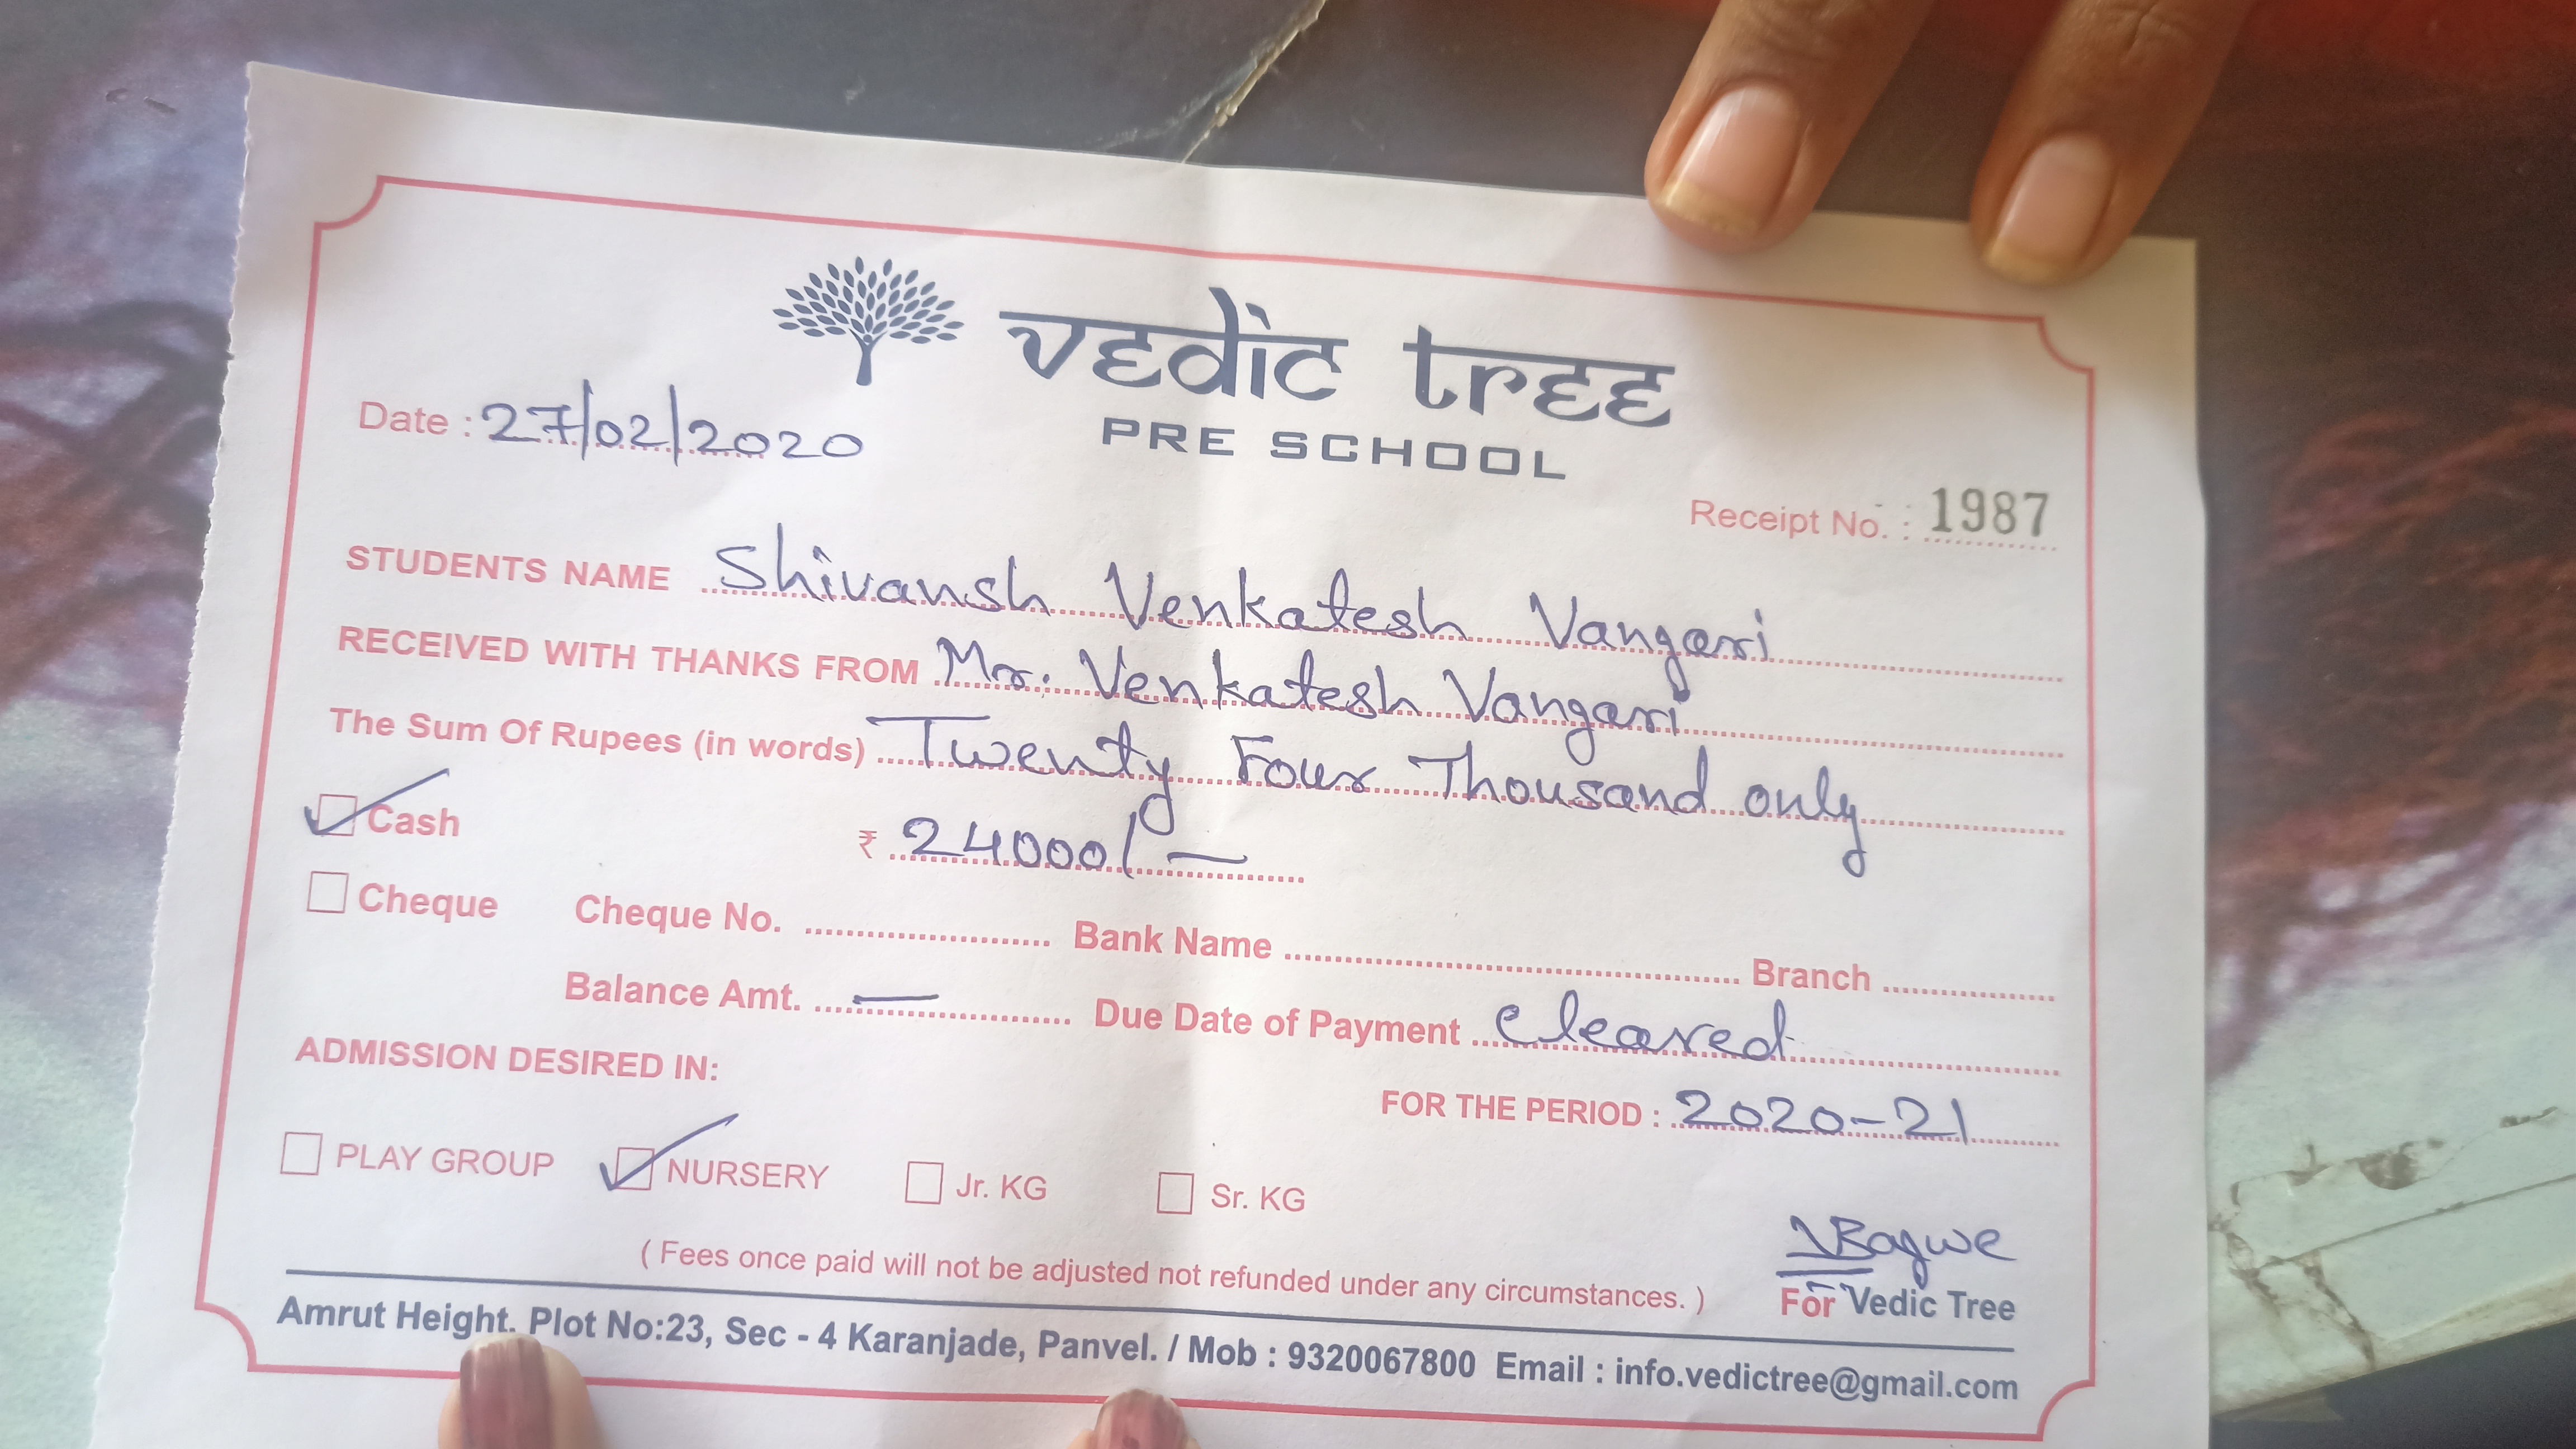 vedic tree
PRE SCHOOL
Date : 27/02/2020
Receipt No. : 1987
STUDENTS NAME Shivansh Venkatesh Vangari
RECEIVED WITH THANKS FROM Mr. Venkatesh Vangari
The Sum Of Rupees (in words) Twenty Four Thousand only
Cash ₹ 24000/-
Cheque Cheque No. Bank Name Branch
Balance Amt. — Due Date of Payment cleared
ADMISSION DESIRED IN:
FOR THE PERIOD : 2020-21
PLAY GROUP NURSERY Jr. KG Sr. KG
Bagwe
( Fees once paid will not be adjusted not refunded under any circumstances. )
For Vedic Tree
Amrut Height. Plot No:23, Sec - 4 Karanjade, Panvel. / Mob : 9320067800 Email : info.vedictree@gmail.com